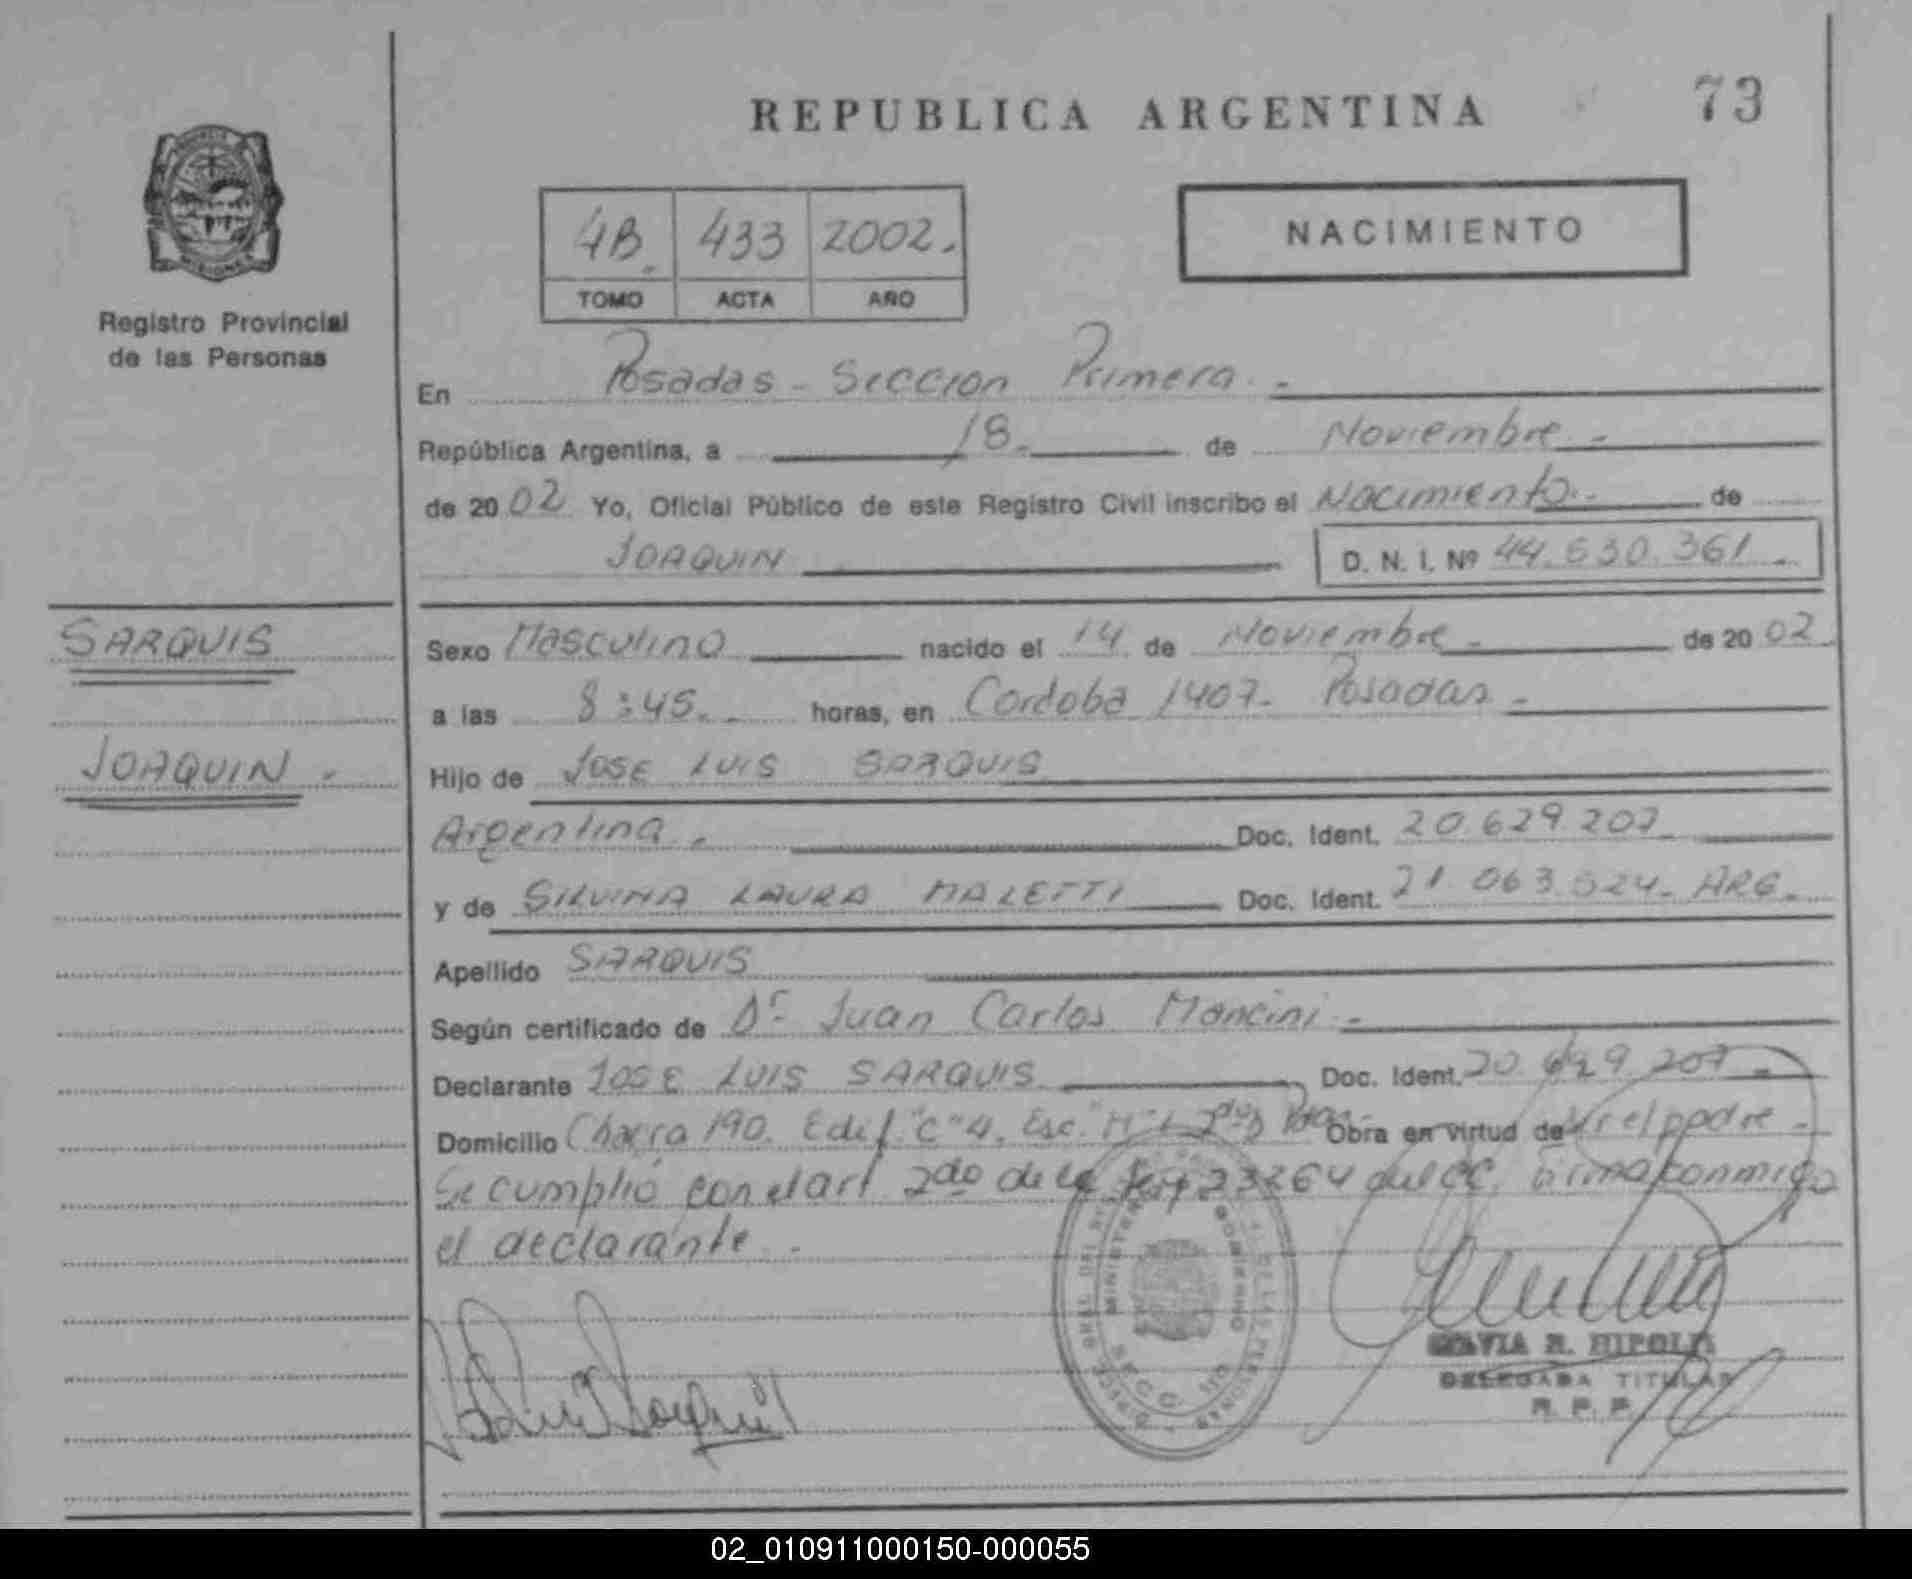 REPUBLICA ARGENTINA
73
4B. 433 2002.
TOMO ACTA AÑO
NACIMIENTO
MISIONES
Registro Provincial
de las Personas
En Posadas - Seccion Primera. -
República Argentina, a 18. de Noviembre. -
de 2002 Yo, Oficial Público de este Registro Civil inscribo el Nacimiento. - de
JOAQUIN D. N. I. Nº 44.530.361. -
SARQUIS
JOAQUIN. -
Sexo Masculino nacido el 14 de Noviembre. - de 2002
a las 8:45. horas, en Cordoba 1407. Posadas. -
Hijo de JOSE LUIS SARQUIS
Argentina. - Doc. Ident. 20.629.207.
y de SILVINA LAURA MALETTI Doc. Ident. 21.063.524. ARG. -
Apellido SARQUIS
Según certificado de Dr Juan Carlos Mancini. -
Declarante JOSE LUIS SARQUIS Doc. Ident. 20.629.207. -
Domicilio Chacra 190. Edif. "C" 4. Esc. "M" Obra en virtud de ser el padre. -
Se cumplió con el art 2do de la Ley 23264 del CC. firma conmigo
el declarante. -
MINISTERIO GOBIERNO
SECC.
R. HIPOLI
DELEGADA TITULAR
R. P. P.
02_010911000150-000055